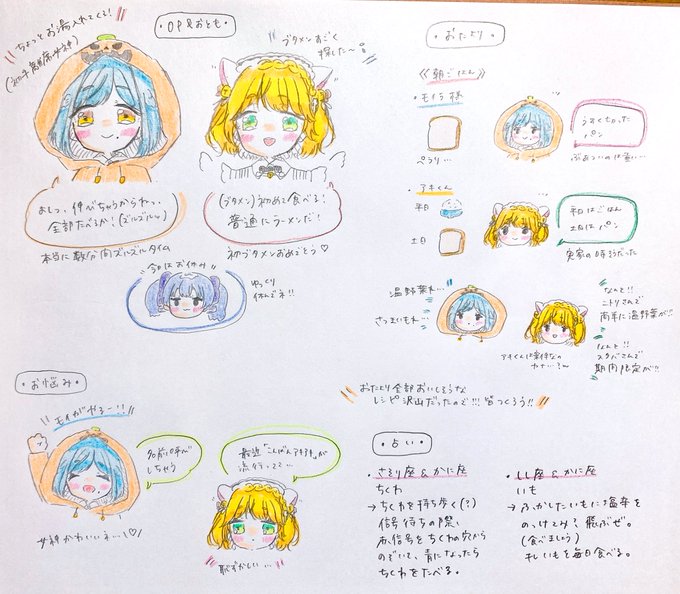 ちょっとお湯入れてくる!
・OP&おとも・
ブタメンすごく
探した〜
よしっ、伸びちゃうからねっ、
全部たべるか!(ズルズルッ)
本当に数分間ズルズルタイム
(ブタメン)初めて食べる!
普通にラーメンだ!
初ブタメンおめでとう♡
今日はお休み
ゆっくり
休んでネ!!
・おたより・
《朝ごはん》
・モイラ様
ぺらり…
うすく切った
パン
・アキくん
平日
土日
平日はごはん
土日はパン
実家の時そうだった
温野菜や…
さつまいもや…
なんと!!
ニトリさんで
なんと!!
スタバさんで
期間限定が!!
おたより全部おいしそうな
レシピ沢山だったので!!!皆つくろう!!
・お悩み・
モイがやるー!!
名前呼び
しちゃう
女神かわいいネ…♡
最近「こんばんアキアキ」が
流行ってて…
恥ずかしい…
・占い・
・さそり座&かに座
ちくわ
→ちくわを持ち歩く(?)
信号待ちの際、
赤信号をちくわの穴から
のぞいて、青になったら
ちくわをたべる。
・しし座&かに座
いも
→ふかしたいもに塩辛を
のっけてみ?飛ぶぜ。
(食べましょう)
干しいもを毎日食べる。